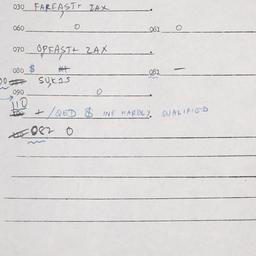 030 FAREAST+ ZAX
060 0 063 0
070 OPEAST+ ZAX
080 $ 082 —
SUKIS
090 0
110 + /QED $ INF HARDLY QUALIFIED
082 0